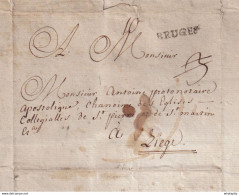 BRUGES
A Monsieur
Monsieur Antoine protonotaire
Apostolique, Chanoine des Eglises
Collegialles de St. Pierre de St. martin
A Liege